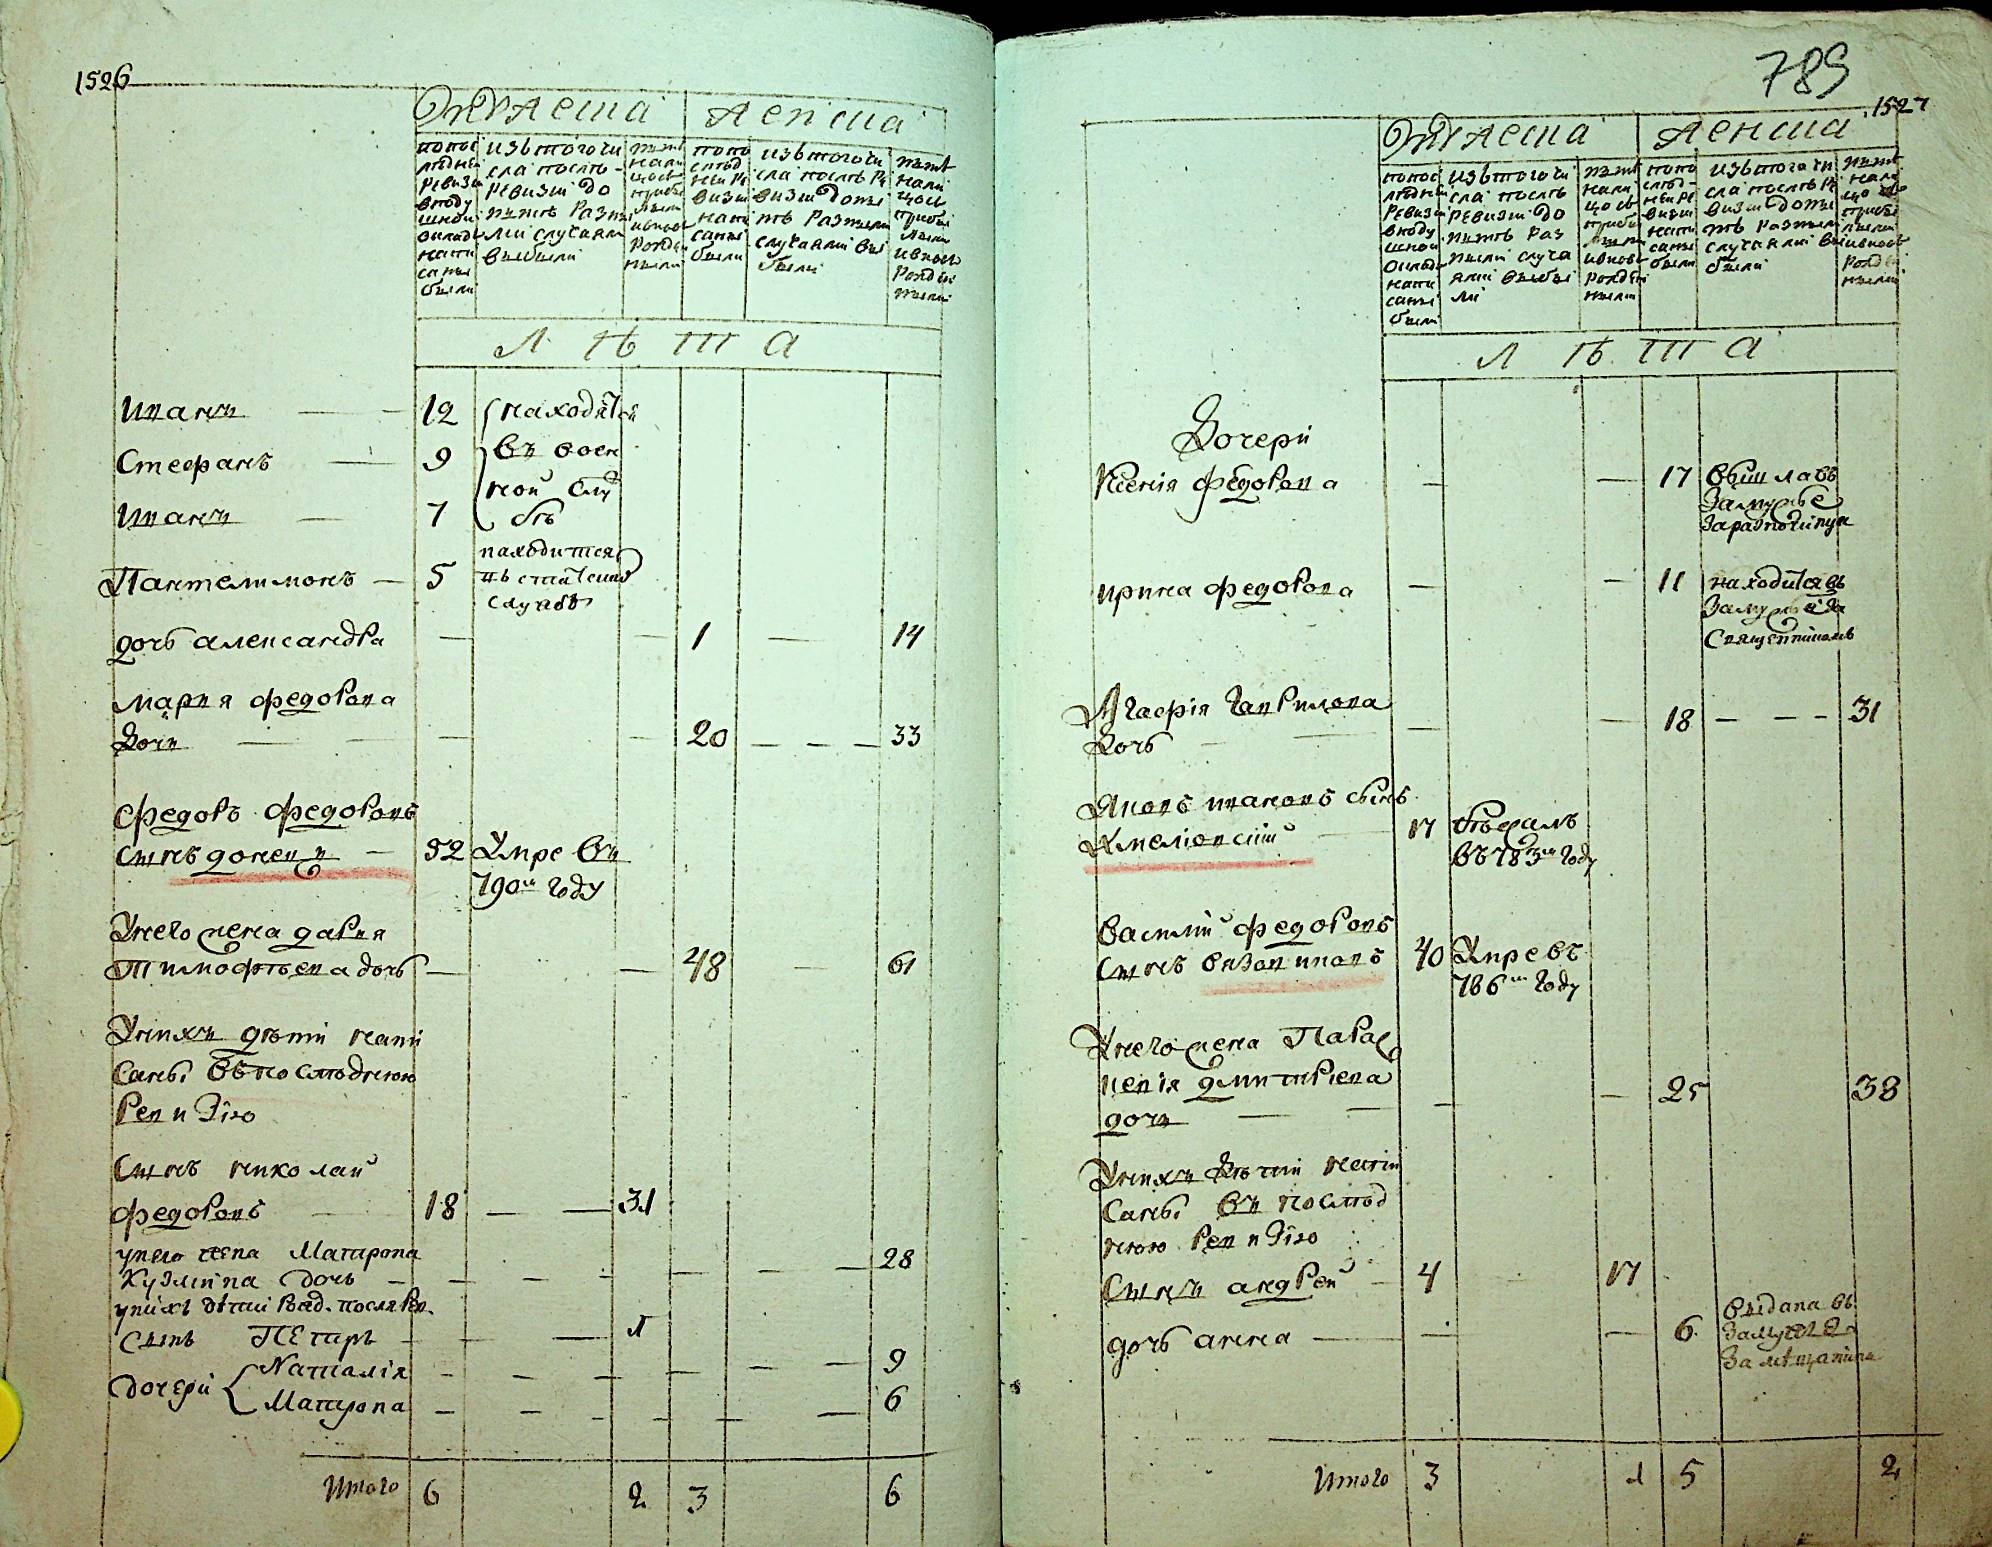 1526
Мужеска
Женска
попос
лѣднеi
ревизиi
вподу
шной
окладъ
напи
саны
были
изътогочи
сла послѣ
ревизиi до
нынѣ разны
ми случаями
выбыли
нынѣ
нали
цосъ
прибы
лыми
ивновь
рожде
ными
попо
слѣд
неи ре
визiи
напи
саны
были
изътогочи
сла послѣ ре
визiи доны
нѣ разными
случаями вы
были
нынѣ
нали
цось
прибы
лыми
ивновь
рожде
ными
Л ѣ т а
Иванъ 12 находятся
Стефанъ 9 въ воен
ной слу
Иванъ 7 жбѣ
находится
Пантелимонъ 5 въ статской
службѣ
дочь александра 1 14
Мария федорова
дочь 20 33
федоръ федоровъ
сынъ донецъ 52 Умре въ
790м году
Унего жена дарья
Тимофѣева дочь 48 61
Унихъ дѣти напи
саны въпослѣднюю
ревизiю
Сынъ николай
федоровъ 18 31
унего жена Матрона
Кузмiна дочь 28
унiхъ дѣтiй рожд. после рев.
Сынъ Пётръ 1
дочерй Наталiя 9
Матрона 6
Итого 6 2 3 6
789
1527
Мужеска
женска
попос
лѣднеi
ревизиi
вподу
шной
окладъ
напи
саны
были
изътогочи
сла послѣ
ревизиi до
нынѣ раз
ными случа
ями выбы
ли
нынѣ
нали
цосъ
прибы
лыми
ивновь
рожден
ными
попо
слѣд
ней ре
визiи
напи
саны
были
изътогочи
сла послѣ ре
визiи доны
нѣ разными
случаями вы
были
нынѣ
нали
цо съ
прибы
лыми
ивновь
рожден
ными
Л ѣ т а
Дочери
Ксенiя федорова 17 вышла въ
Замужье
Заразночинца
ирина федорова 11 находится въ
Замужье За
Священникомъ
Агафiя Гаврилова
дочь 18 31
Яковъ ивановъ сынъ
Хмелiовскiй 17 Сбежалъ
въ 783м Году
василiй федоровъ
сынъ вязовиковъ 40 Умре въ
786м Году
Унего жена Парас
кевiя дмитрiева
дочь 25 38
Унихъ дѣтiй напи
саны въ послѣд
нюю ревизiю
Сынъ андрей 4 17
дочь анна 6 выдана въ
Замужье
За мѣщанина
Итого 3 1 5 2